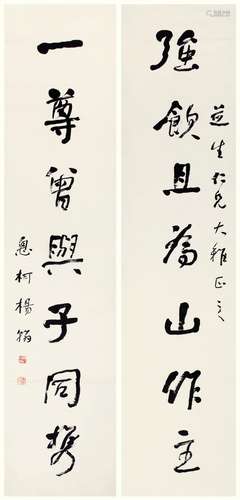 强飲且為山作主
芝生仁兄大雅正之
一尊曾與子同攜
惠柯楊翰